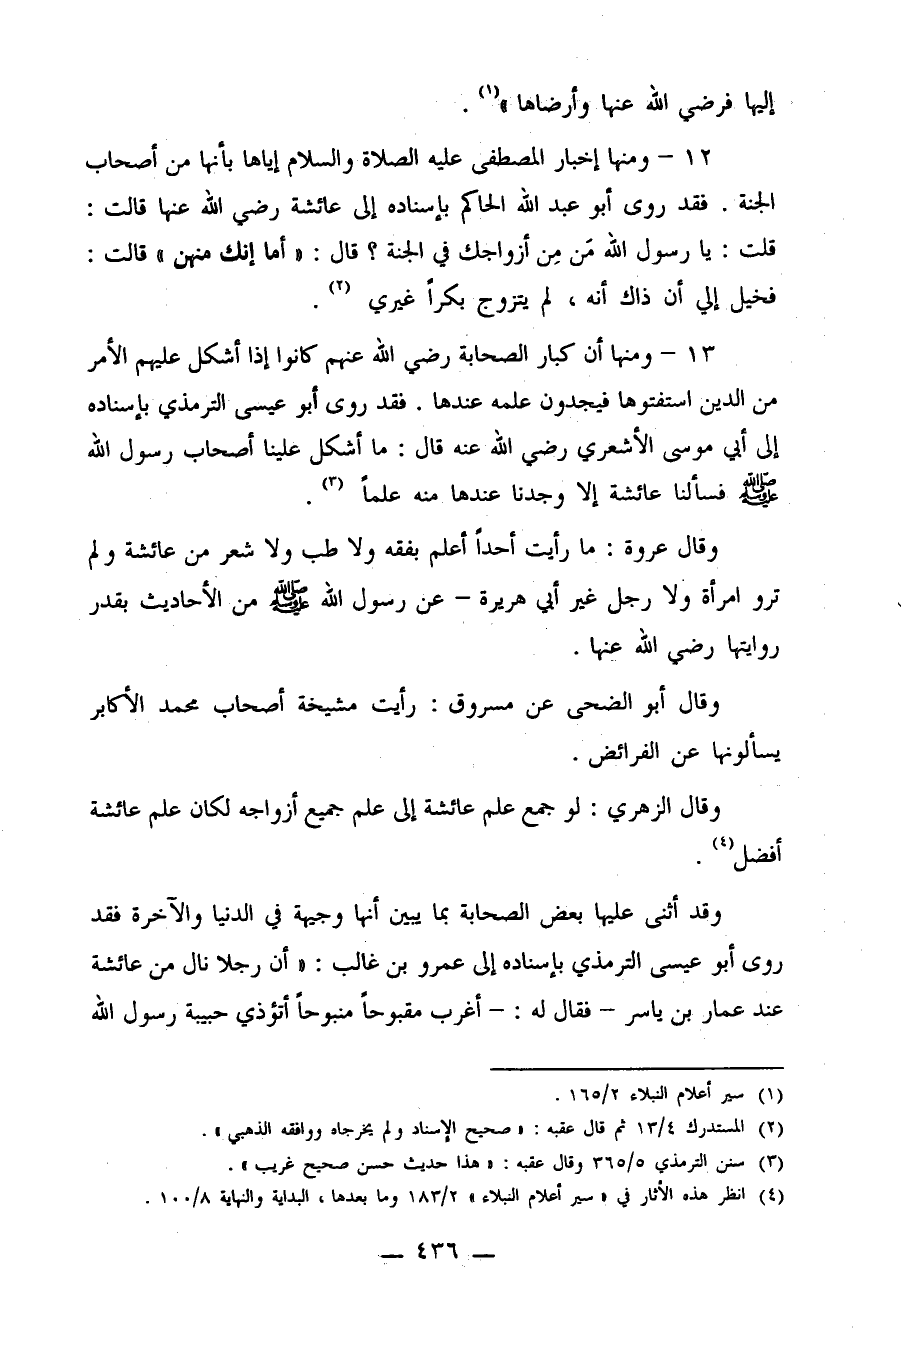 إليها فرضي الله عنها وأرضاها »(١) .
١٢ – ومنها إخبار المصطفى عليه الصلاة والسلام إياها بأنها من أصحاب
الجنة . فقد روى أبو عبد الله الحاكم بإسناده إلى عائشة رضي الله عنها قالت :
قلت : يا رسول الله مَن مِن أزواجك في الجنة ؟ قال : « أما إنك منهن » قالت :
فخيل إلي أن ذاك أنه ، لم يتزوج بكراً غيري (٢) .
١٣ – ومنها أن كبار الصحابة رضي الله عنهم كانوا إذا أشكل عليهم الأمر
من الدين استفتوها فيجدون علمه عندها . فقد روى أبو عيسى الترمذي بإسناده
إلى أبي موسى الأشعري رضي الله عنه قال : ما أشكل علينا أصحاب رسول الله
ﷺ فسألنا عائشة إلا وجدنا عندها منه علماً (٣) .
وقال عروة : ما رأيت أحداً أعلم بفقه ولا طب ولا شعر من عائشة ولم
ترو امرأة ولا رجل غير أبي هريرة – عن رسول الله ﷺ من الأحاديث بقدر
روايتها رضي الله عنها .
وقال أبو الضحى عن مسروق : رأيت مشيخة أصحاب محمد الأكابر
يسألونها عن الفرائض .
وقال الزهري : لو جمع علم عائشة إلى علم جميع أزواجه لكان علم عائشة
أفضل(٤) .
وقد أثنى عليها بعض الصحابة بما يبين أنها وجيهة في الدنيا والآخرة فقد
روى أبو عيسى الترمذي بإسناده إلى عمرو بن غالب : « أن رجلا نال من عائشة
عند عمار بن ياسر – فقال له : – أغرب مقبوحاً منبوحاً أتؤذي حبيبة رسول الله
(١) سير أعلام النبلاء ١٦٥/٢ .
(٢) المستدرك ١٣/٤ ثم قال عقبه : « صحيح الإسناد ولم يخرجاه ووافقه الذهبي » .
(٣) سنن الترمذي ٣٦٥/٥ وقال عقبه : « هذا حديث حسن صحيح غريب » .
(٤) انظر هذه الأثار في « سير أعلام النبلاء » ١٨٣/٢ وما بعدها ، البداية والنهاية ١٠٠/٨ .
— ٤٣٦ —